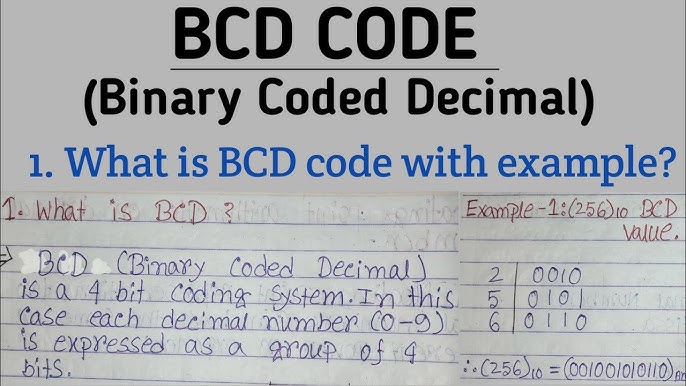 BCD CODE
(Binary Coded Decimal)
1. What is BCD code with example?
1. What is BCD ?
BCD (Binary Coded Decimal)
is a 4 bit coding system. In this
case each decimal number (0-9)
is expressed as a group of 4
bits.
Example-1:(256)10 BCD
value.
2 | 0010
5 | 0101
6 | 0110
∴(256)10 = (001001010110)